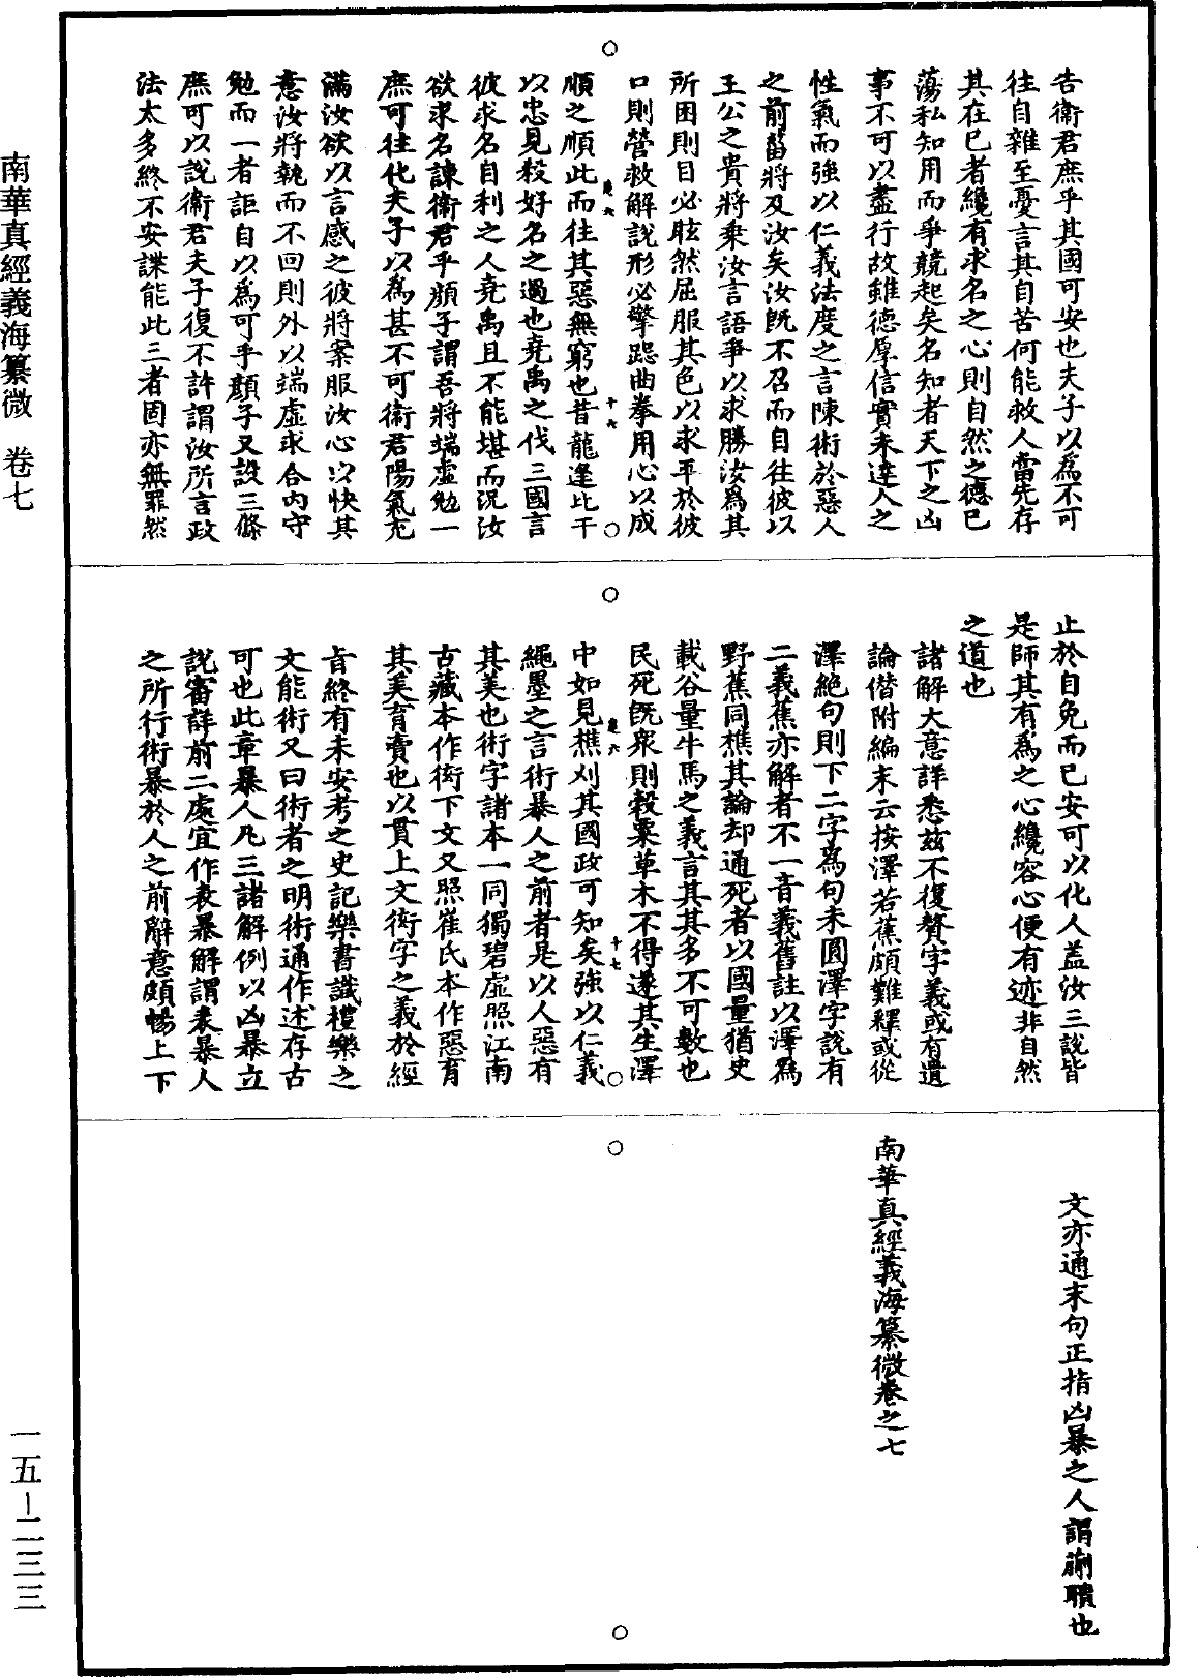 告衛君庶乎其國可安也夫子以爲不可
往自雜至憂言其自苦何能救人當先存
其在已者纔有求名之心則自然之德已
蕩私知用而爭競起矣名知者天下之凶
事不可以盡行故雖德厚信實未達人之
性氣而強以仁義法度之言陳術於惡人
之前菑將及汝矣汝旣不召而自往彼以
王公之貴將乘汝言語爭以求勝汝爲其
所困則目必眩然屈服其色以求平於彼
口則營救解說形必擎跽曲拳用心以成
順之順此而往其惡無窮也昔龍逢比干
以忠見殺好名之過也堯禹之伐三國言
彼求名自利之人堯禹且不能堪而況汝
欲求名諫衛君乎顏子謂吾將端虛勉一
庶可往化夫子以爲甚不可衛君陽氣充
滿汝欲以言感之彼將案服汝心以快其
意汝將執而不回則外以端虛求合內守
勉而一者詎自以爲可乎顏子又設三條
庶可以說衛君夫子復不許謂汝所言政
法太多終不安諜能此三者固亦無罪然
止於自免而已安可以化人蓋汝三說皆
是師其有爲之心纔容心便有迹非自然
之道也
諸解大意詳悉茲不復贅字義或有遺
論僣附編末云按澤若蕉頗難釋或從
澤絶句則下二字爲句未圓澤字說有
二義蕉亦解者不一音義舊註以澤爲
野蕉同樵其論却通死者以國量猶史
載谷量牛馬之義言其其多不可數也
民死旣衆則穀粟草木不得遂其生澤
中如見樵刈其國政可知矣強以仁義
繩墨之言術暴人之前者是以人惡有
其美也術字諸本一同獨碧虛照江南
古藏本作衒下文又照崔氏本作惡育
其美育賣也以貫上文衒字之義於經
旨終有未安考之史記樂書識禮樂之
文能術又曰術者之明術通作述存古
可也此章暴人凡三諸解例以凶暴立
說審詳前二處宜作表暴解謂表暴人
之所行術暴於人之前辭意頗暢上下
文亦通末句正指凶暴之人謂蒯聵也
南華真經義海纂微卷之七
南華真經義海纂微　卷七
一五-二三三